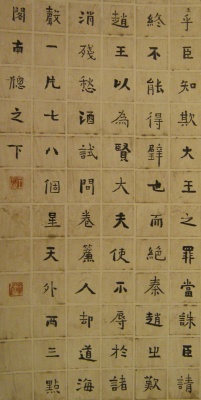 乎臣知欺大王之罪當誅臣請
終不能得璧也而絕秦趙之歡
趙王以為賢大夫使不辱於諸
消殘愁酒試問卷簾人却道海
聲一片七八個星天外兩三點
閣南牕之下